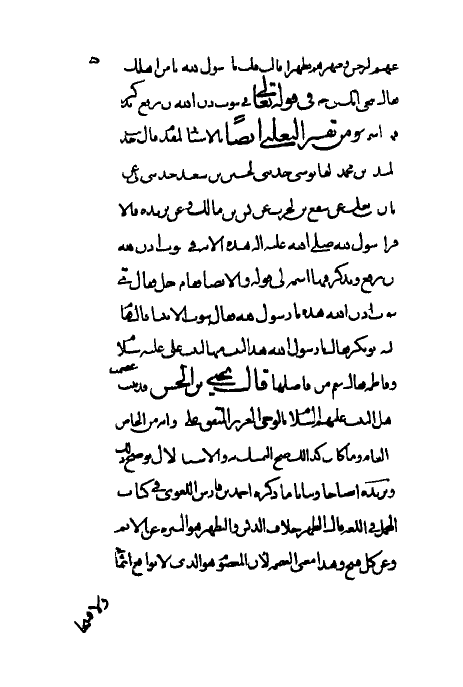 عنهم الرجس وطهرهم تطهيرا قالت قلت يا رسول الله انا من اهلك
قال في قوله تعالى في بيوت اذن الله ان ترفع
ومن تفسير الثعلبي ايضا بالاسناد المقدم قال حدثنا
المنذر بن محمد القابوسي حدثني الحسين بن سعيد حدثني ابي عن
ابان بن تغلب عن نفيع بن الحرث عن انس بن مالك وعن بريده قالا
قرا رسول الله صلى الله عليه واله هذه الايه في بيوت اذن الله
ان ترفع ويذكر فيها اسمه الى قوله والابصار فقام رجل فقال اي
بيوت هذه يا رسول الله فقال بيوت الانبيا قال فقام
اليه ابو بكر فقال يا رسول الله هذا البيت منها لبيت علي عليه السلام
وفاطمه قال نعم من افاضلها قال يحيى بن الحسن فقد ثبت عصمه
اهل البيت عليهم السلام بالوحي العزيز المتفق عليه وانه من الخاص
العام وما كان كذلك صح التمسك به والاستدلال
ونزيده ايضاحا وبيانا ما ذكره احمد بن فارس اللغوي في كتاب
المجمل في اللغه قال الطهر خلاف الدنس والتطهر هو التنزه عن الاثم
وعن كل قبيح وهذا معنى العصمه لان المعصوم هو الذي لا يواقع اثما
ولا قبيحا